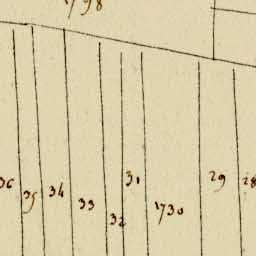 1798
36 35 34 33 32 31 1730 29 28